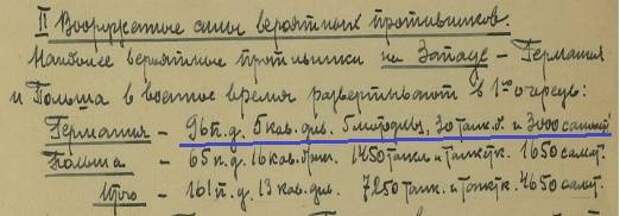 II Вооруженные силы вероятных противников.
Наиболее вероятные противники на Западе – Германия
и Польша в военное время развертывают в 1ую очередь:
Германия – 96 п.д. 5 кав. див. 5 мотодив, 30 танк.б. и 3000 самол.
Польша – 65 п.д. 16 кав. бриг. 1450 танк. и танкетк. 1650 самол.
Итого – 161 п.д. 13 кав. див. 7250 танк. и танкетк. 4650 самол.